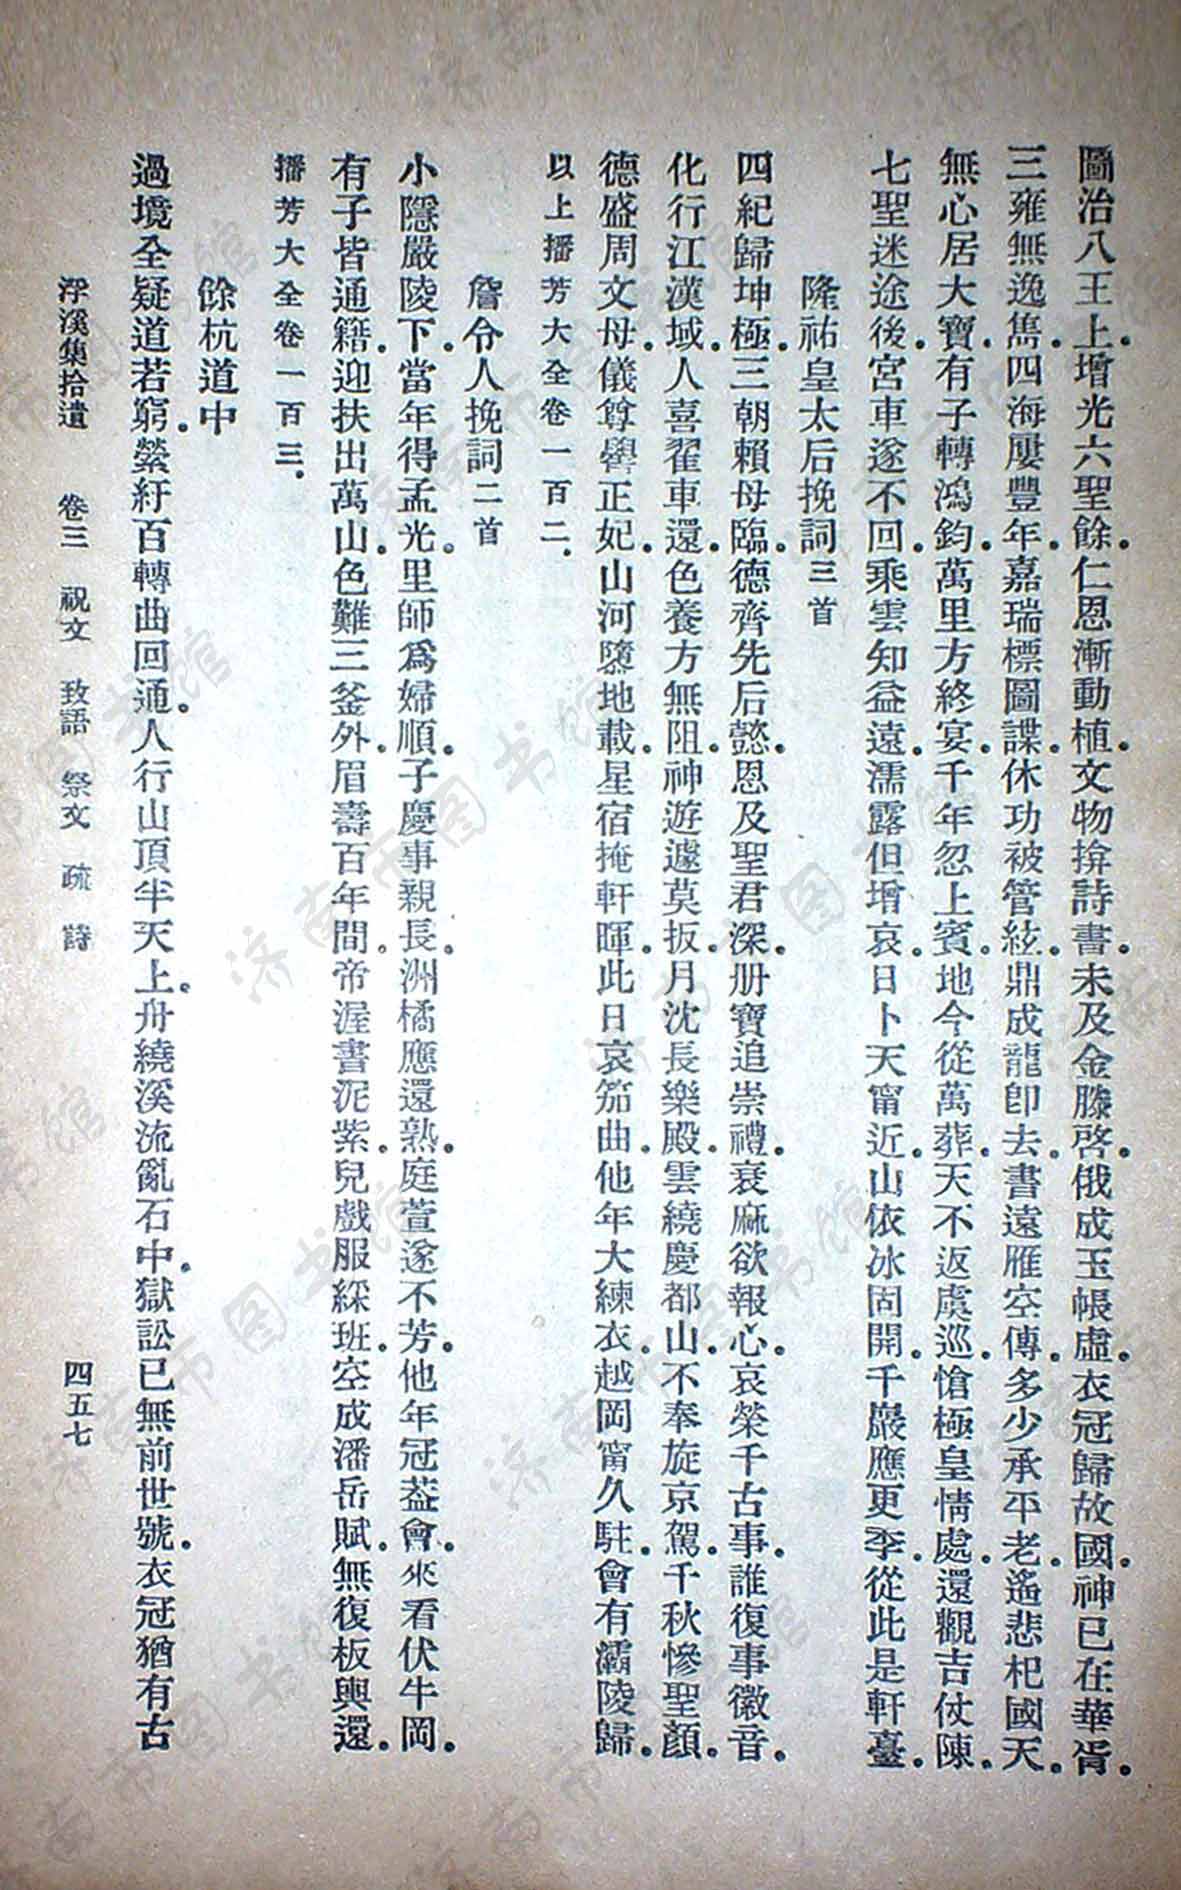 圖治八王上。增光六聖餘。仁恩漸動植。文物揜詩書。未及金滕啓。俄成玉帳虛。衣冠歸故國。神已在華胥。
三雍無逸雋。四海屢豐年。嘉瑞標圖諜。休功被管絃。鼎成龍卽去。書遠雁空傳。多少承平老。遙悲杞國天。
無心居大寶。有子轉鴻鈞。萬里方終宴。千年忽上賓。地今從萬葬。天不返虞巡。愴極皇情處。還觀吉仗陳。
七聖迷途後。宮車遂不回。乘雲知益遠。濡露但增哀。日卜天甯近。山依冰固開。千巖應更李。從此是軒臺。
隆祐皇太后挽詞三首
四紀歸坤極。三朝賴母臨。德齊先后懿。恩及聖君深。册寶追崇禮。衰麻欲報心。哀榮千古事。誰復事徽音。
化行江漢域。人喜翟車還。色養方無阻。神遊遽莫扳。月沈長樂殿。雲繞慶都山。不奉旋京駕。千秋慘聖顏。
德盛周文母。儀尊嚳正妃。山河隳地載。星宿掩軒暉。此日哀笳曲。他年大練衣。越岡甯久駐。會有灞陵歸。
以上播芳大全卷一百二。
詹令人挽詞二首
小隱嚴陵下。當年得孟光。里師爲婦順。子慶事親長。洲橘應還熟。庭萱遂不芳。他年冠蓋會。來看伏牛岡。
有子皆通籍。迎扶出萬山。色難三釜外。眉壽百年間。帝渥書泥紫。兒戲服綵班。空成潘岳賦。無復板輿還。
播芳大全卷一百三。
餘杭道中
過境全疑道若窮。縈紆百轉曲回通。人行山頂半天上。舟繞溪流亂石中。獄訟已無前世號。衣冠猶有古
浮溪集拾遺 卷三 祝文 致語 祭文 疏 詩 四五七
济南市图书馆